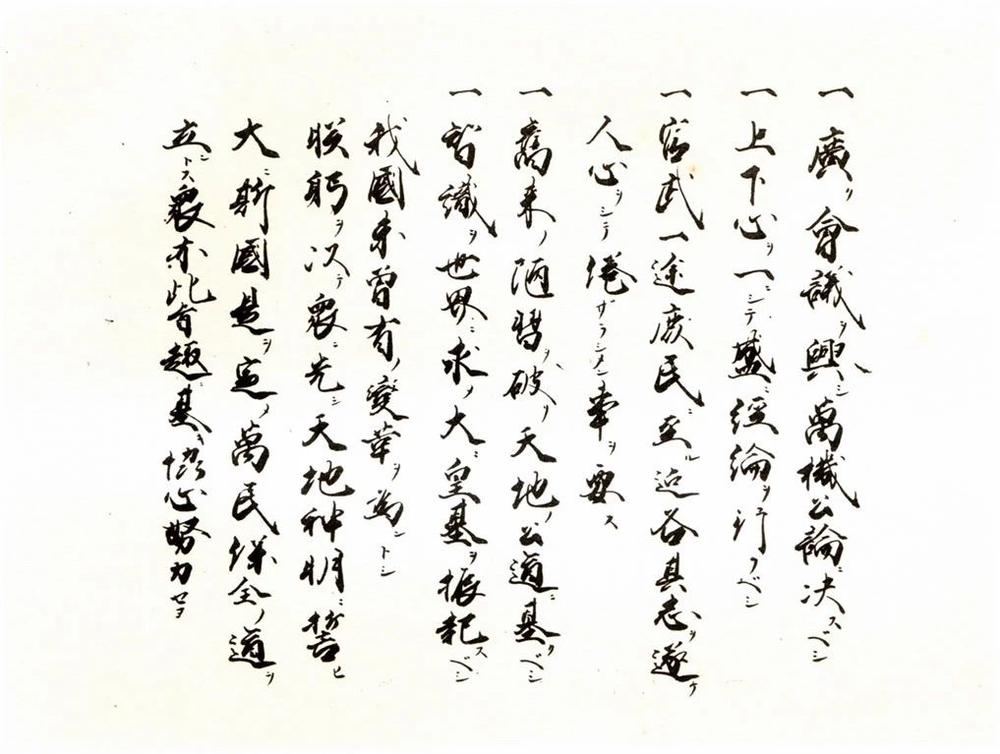 一 廣ク會議ヲ興シ萬機公論ニ決スベシ
一 上下心ヲ一ニシテ盛ニ經綸ヲ行フベシ
一 官武一途庶民ニ至ル迄各其志ヲ遂ケ
人心ヲシテ倦ザラシメン事ヲ要ス
一 舊来ノ陋習ヲ破リ天地ノ公道ニ基クベシ
一 智識ヲ世界ニ求メ大ニ皇基ヲ振起スベシ
我國未曾有ノ變革ヲ為ントシ
朕躬ヲ以テ衆ニ先シ天地神明ニ誓ヒ
大ニ斯國是ヲ定メ萬民保全ノ道ヲ
立ントス衆亦此旨趣ニ基キ協心努力セヨ